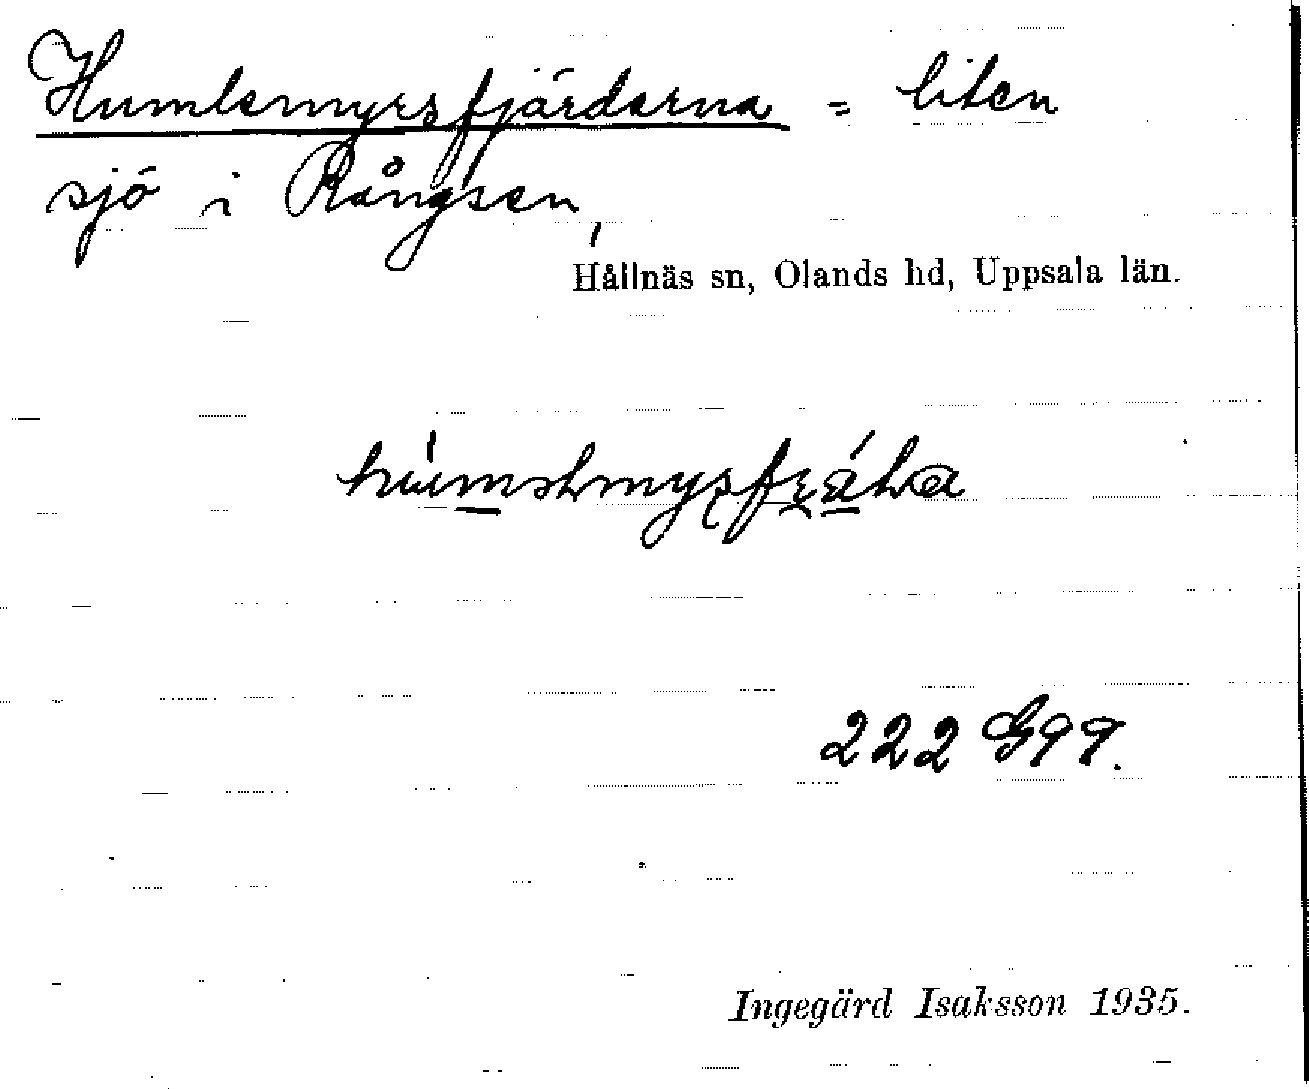 Humlemyrsfjärderna = liten
sjö i Rångsen,
Hållnäs sn, Olands hd, Uppsala län.
222 G99.
Ingegärd Isaksson 1935.